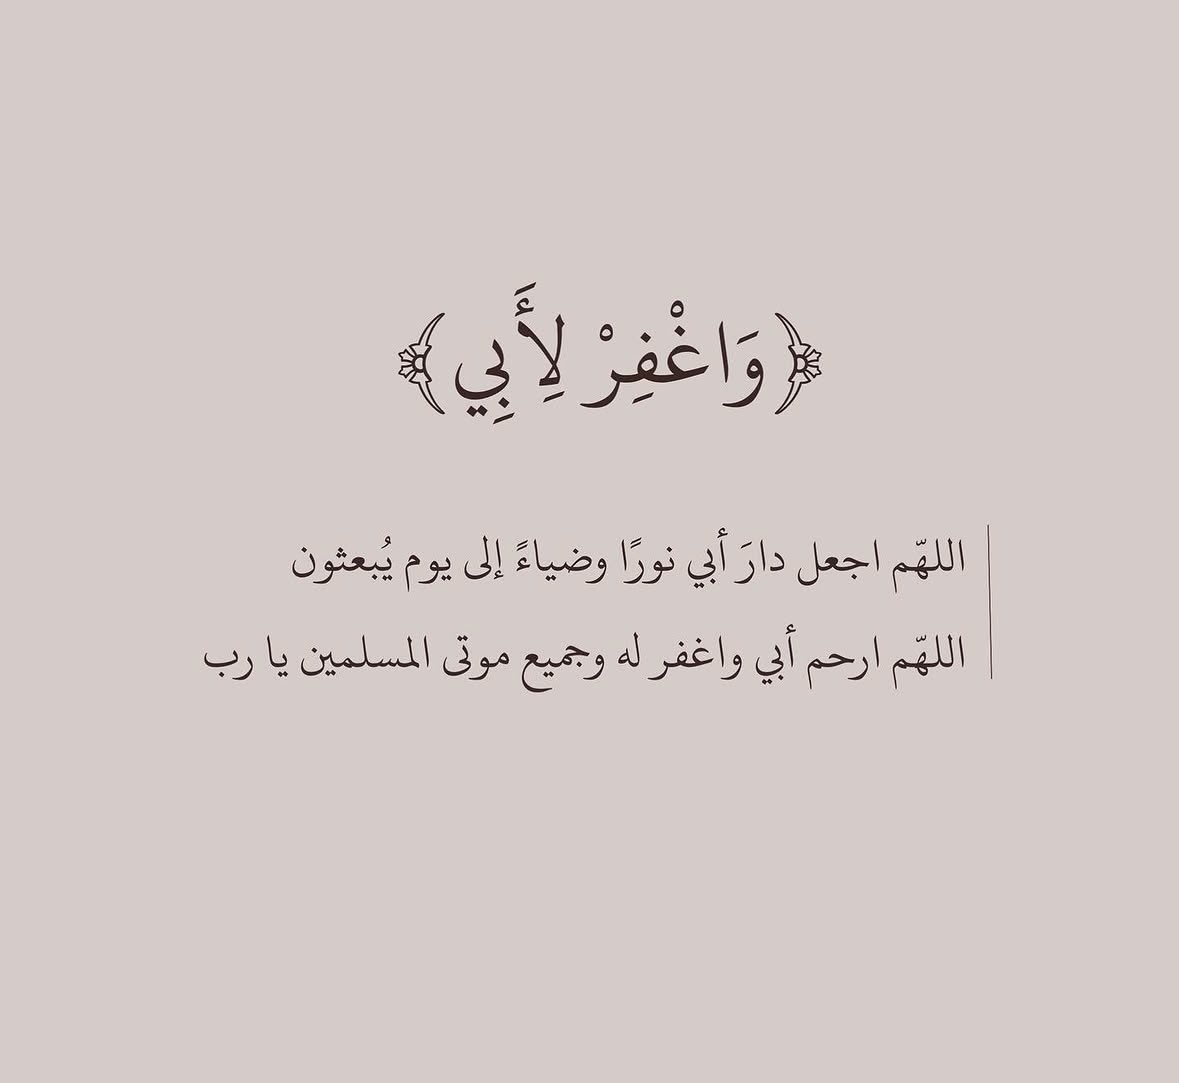 ﴿وَاغْفِرْ لِأَبِي﴾
اللهّم اجعل دارَ أبي نورًا وضياءً إلى يوم يُبعثون
اللهّم ارحم أبي واغفر له وجميع موتى المسلمين يا رب